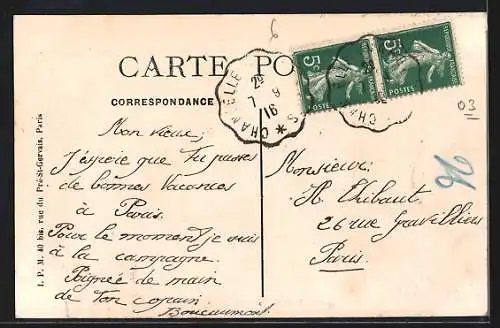 CARTE PO
CORRESPONDANCE
Mon vieux,
J'espère que tu passes
de bonnes vacances
à Paris.
Pour le moment je suis
à la campagne.
Poignée de main
de ton copain
Boucaumont.
Monsieur:
H. Thibaut.
26 rue Gravilliers
Paris.
I. P. M. 40 bis, rue du Pré-St-Gervais, Paris
CHANTELLE
7 8
16
5c
POSTES
5c
POSTES
03
6